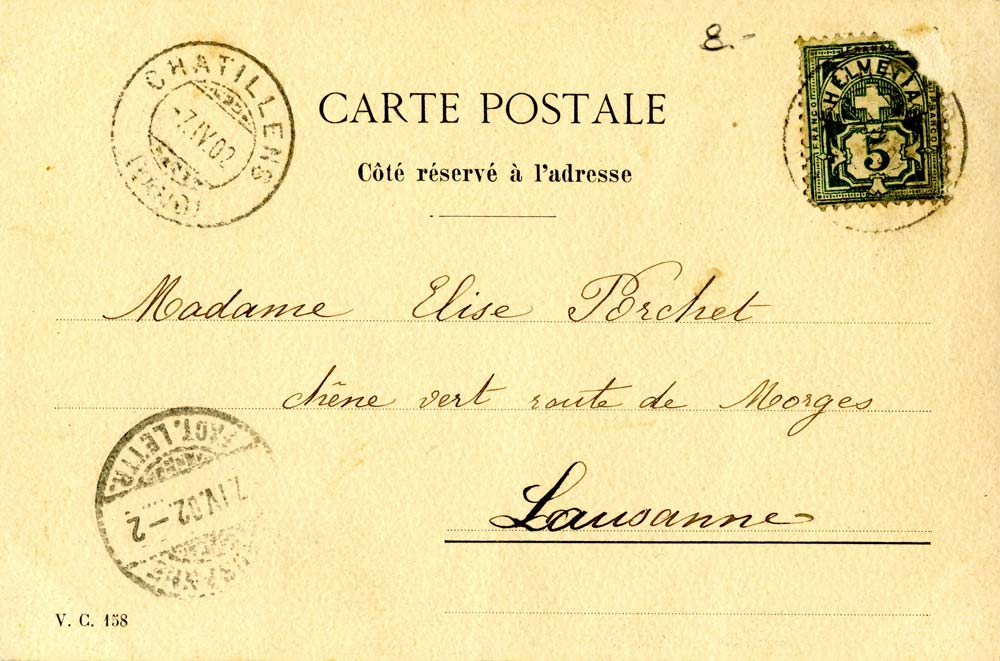 8.-
CHATILLENS
-7.IV.02
(VAUD)
CARTE POSTALE
Côté réservé à l'adresse
HELVETIA
FRANCO
5
Madame Elise Porchet
chêne vert route de Morges
Lausanne
FACT. LETTR.
7.IV.02.-2
V. C. 158